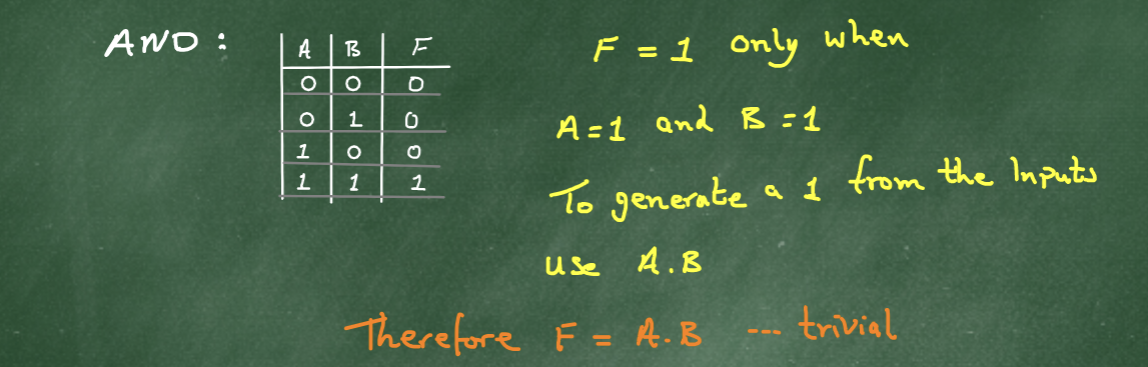 AND :
A B F
0 0 0
0 1 0
1 0 0
1 1 1
F = 1 only when
A = 1 and B = 1
To generate a 1 from the Inputs
use A.B
Therefore F = A.B --- trivial